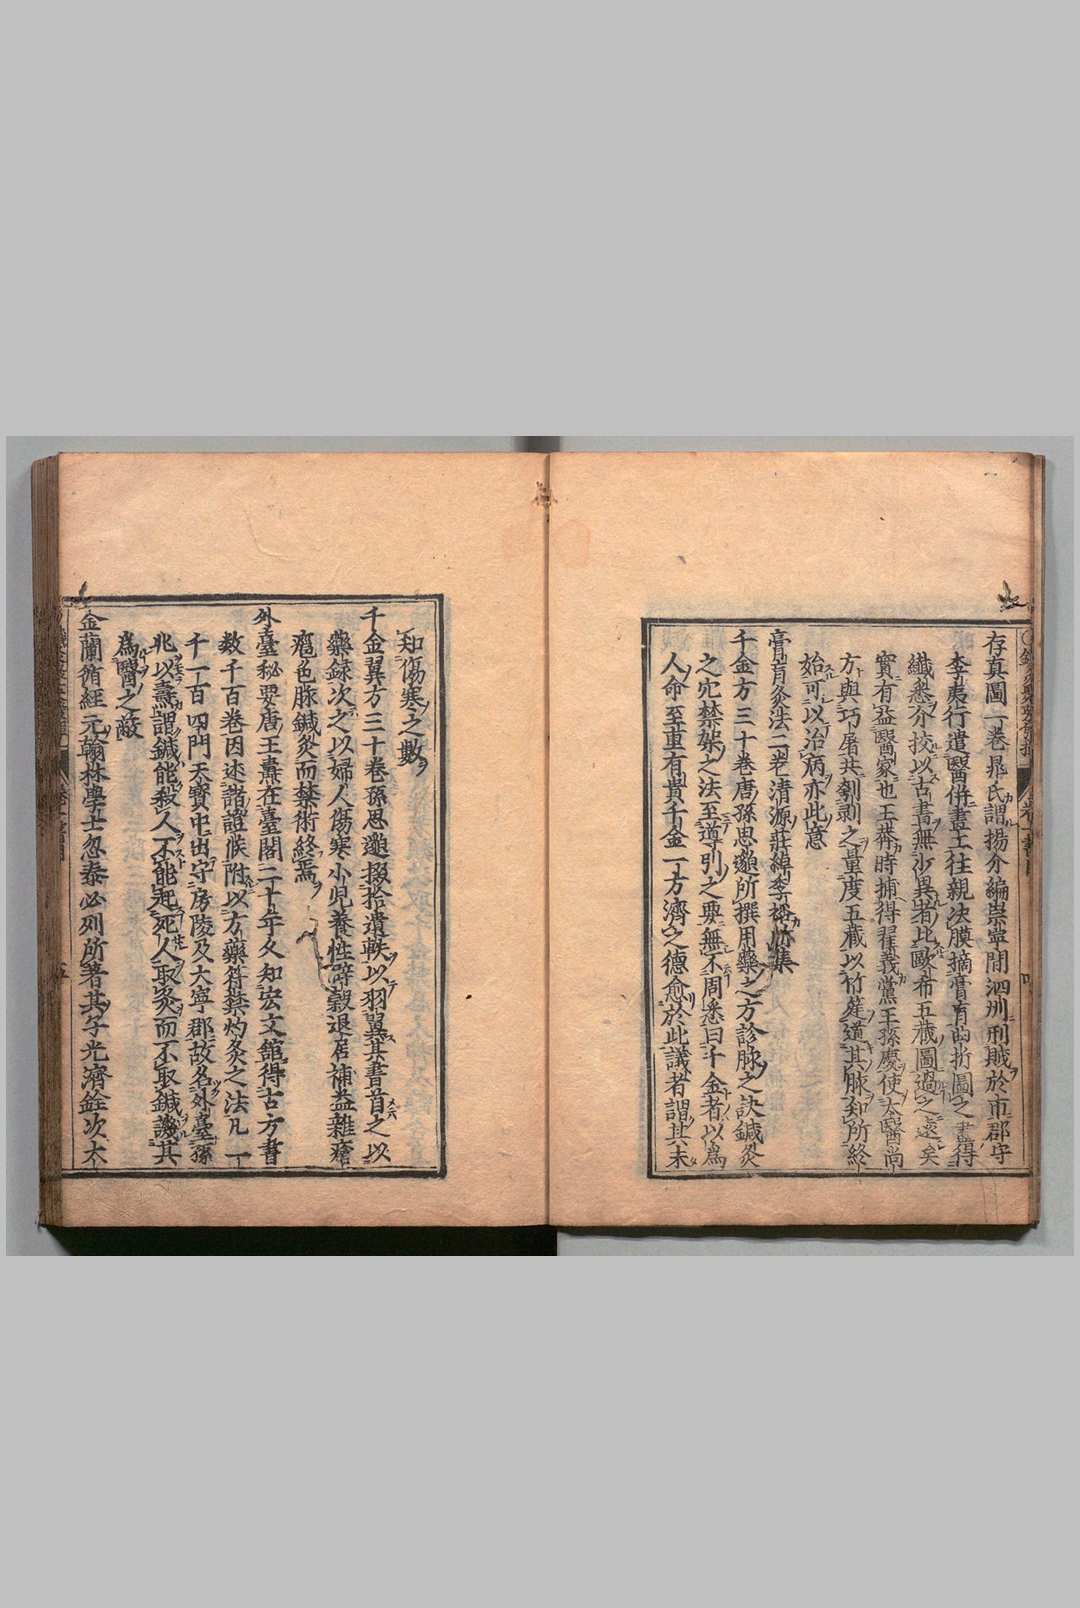 存真圖一卷晁氏謂揚介編崇寧間泗洲刑賊於市郡守
李夷行遣醫併畫工往親决膜摘膏肓曲折圖之盡得
纖悉介挍以古書無少異者比歐希五藏圖過之遠矣
實有益醫家也王莽時捕得翟義黨王孫慶使太醫尚
方與巧屠共刳剥之量度五藏以竹筳導其脉知所終
始可以治病亦此意
膏肓灸法二卷清源莊綽季裕所集
千金方三十卷唐孫思邈所撰用藥之方診脉之訣鍼灸
之穴禁架之法至導引之要無不周悉曰千金者以爲
人命至重有貴千金一方濟之德愈於此議者謂其未
知傷寒之數
千金翼方三十卷孫思邈掇拾遺軼以羽翼其書首之以
藥錄次之以婦人傷寒小兒養性辟穀退居補益雜瘡
瘡色脉鍼灸而禁術終焉
外臺秘要唐王燾在臺閣二十年久知宏文館得古方書
数千百卷因述諸證候附以方藥符禁灼灸之法凡一
千一百四門天寳中出守房陵及大寧郡故名外臺孫
兆以燾謂鍼能殺人不能起死人取灸而不取鍼譏其
爲醫之蔽
金蘭循經元翰林學士忽泰必列所著其子光濟銓次大